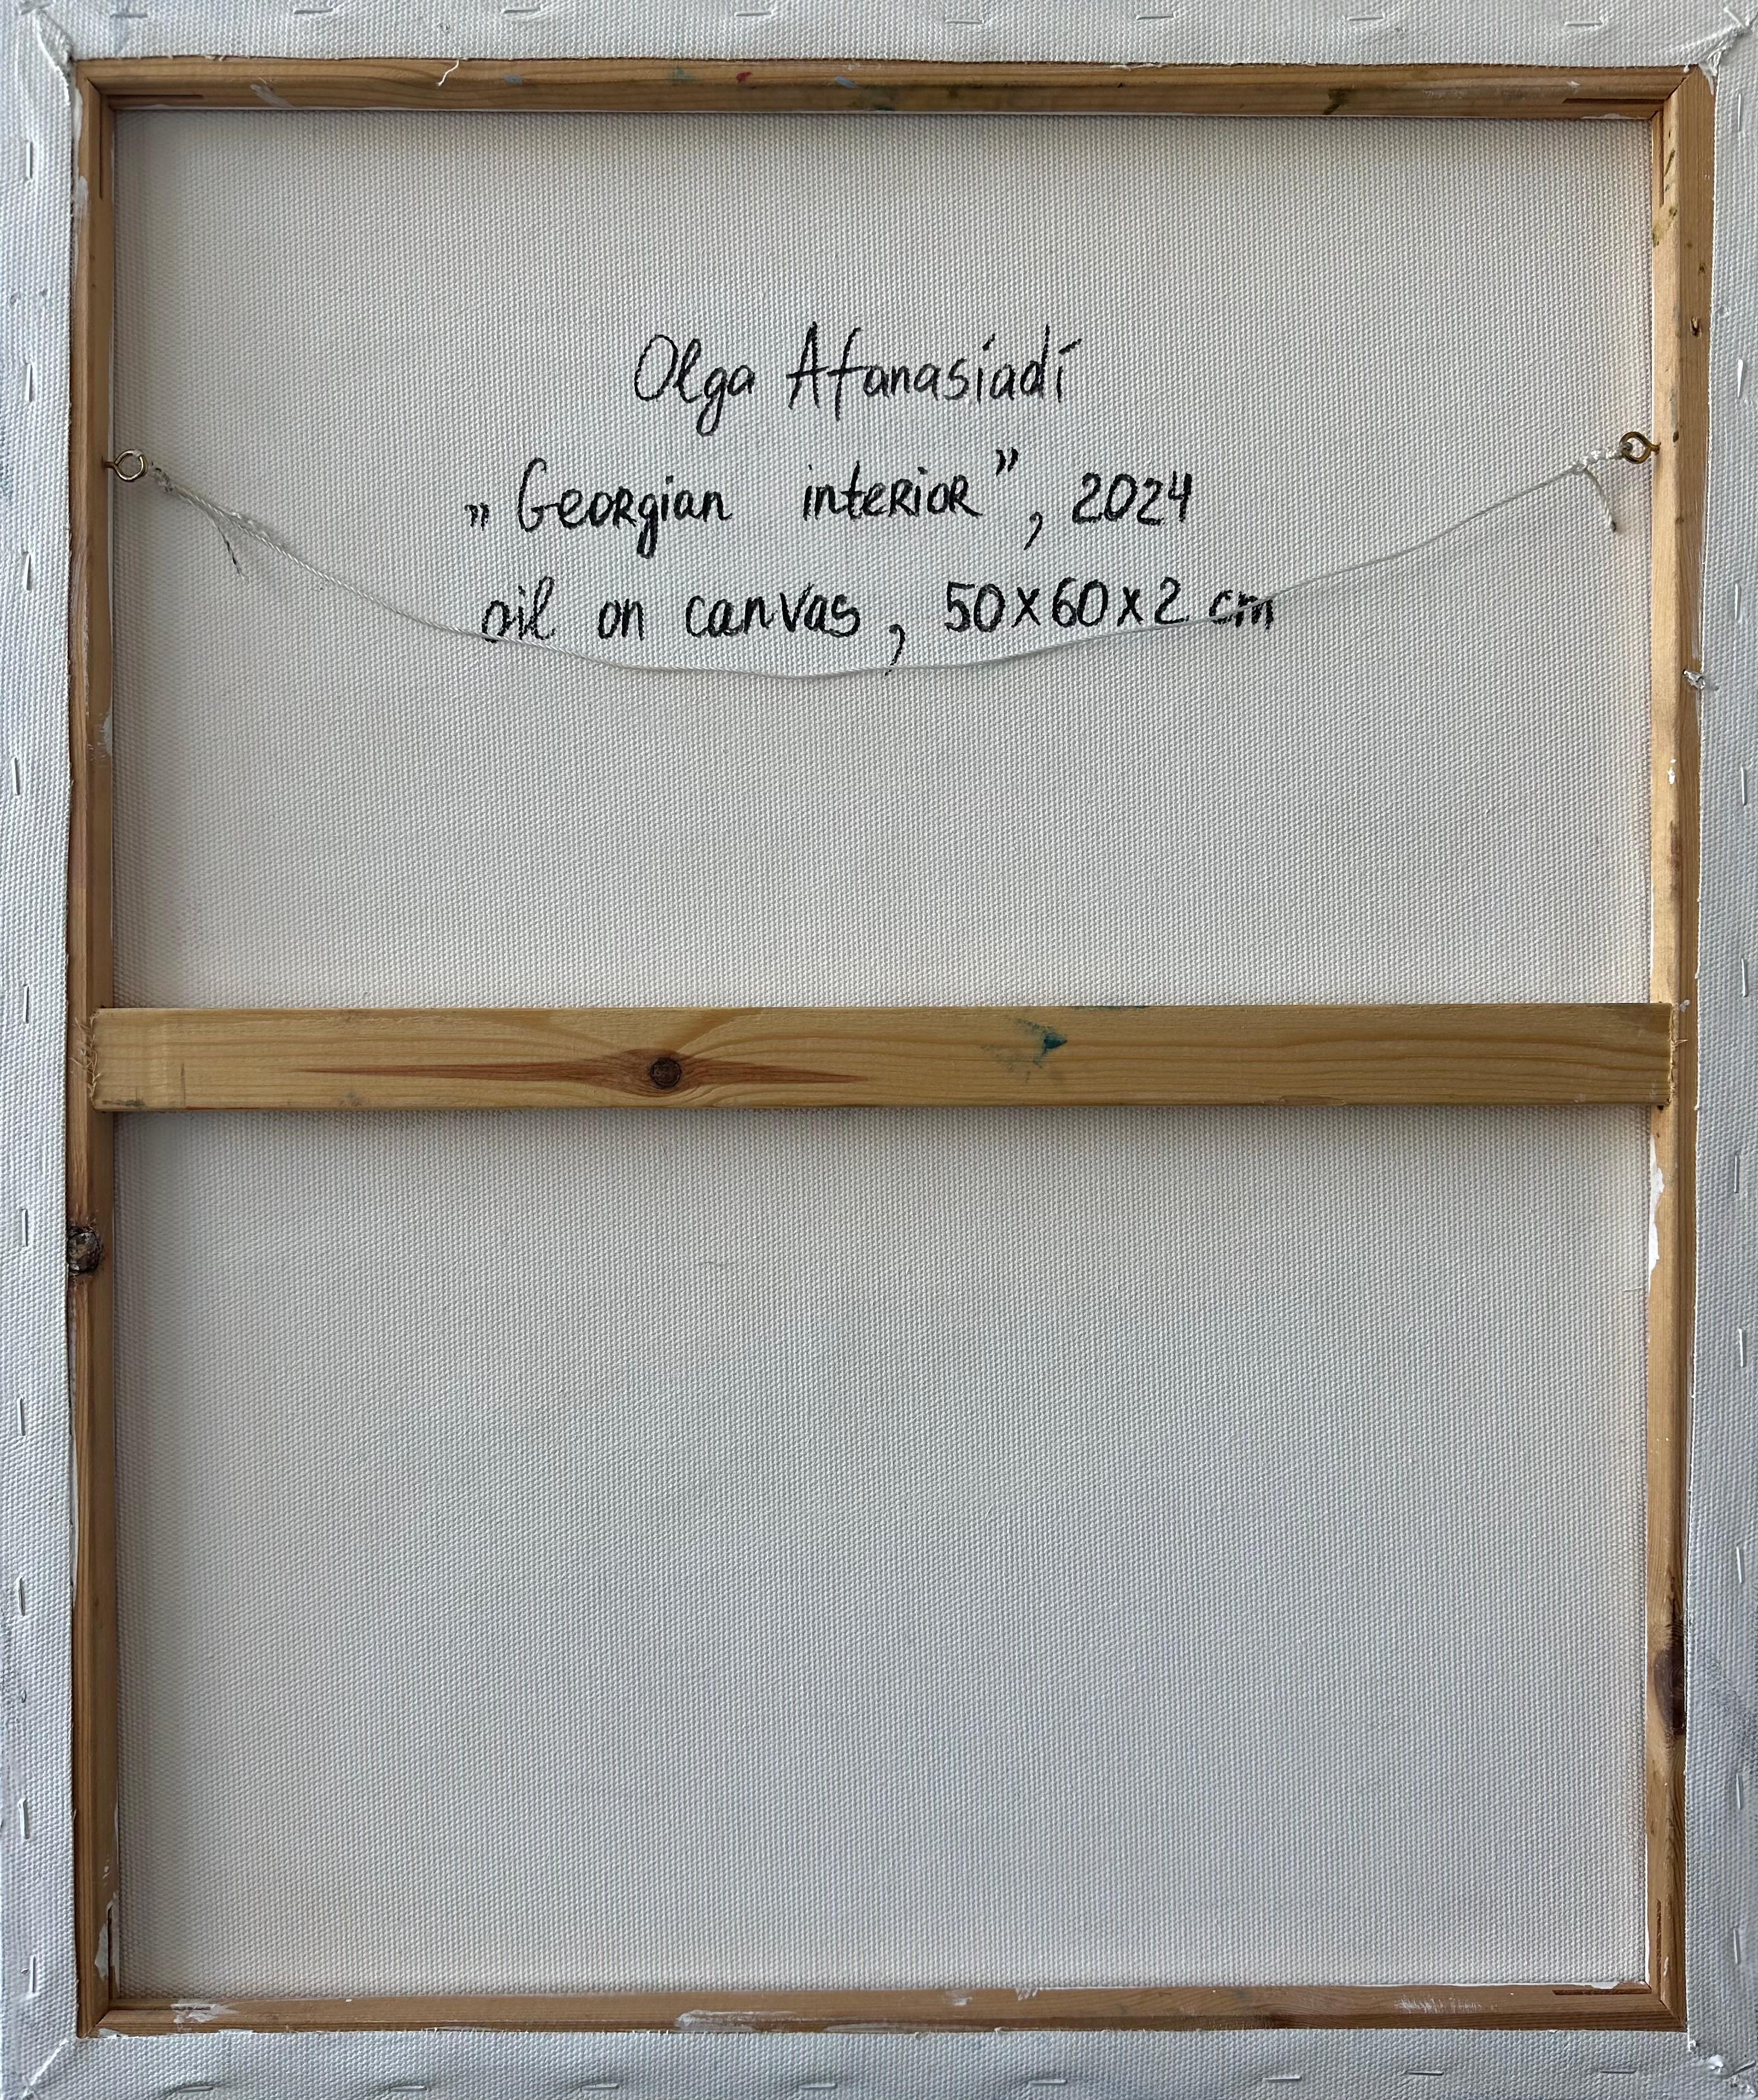 Olga Afanasiadi
„Georgian interior”, 2024
oil on canvas, 50x60x2 cm